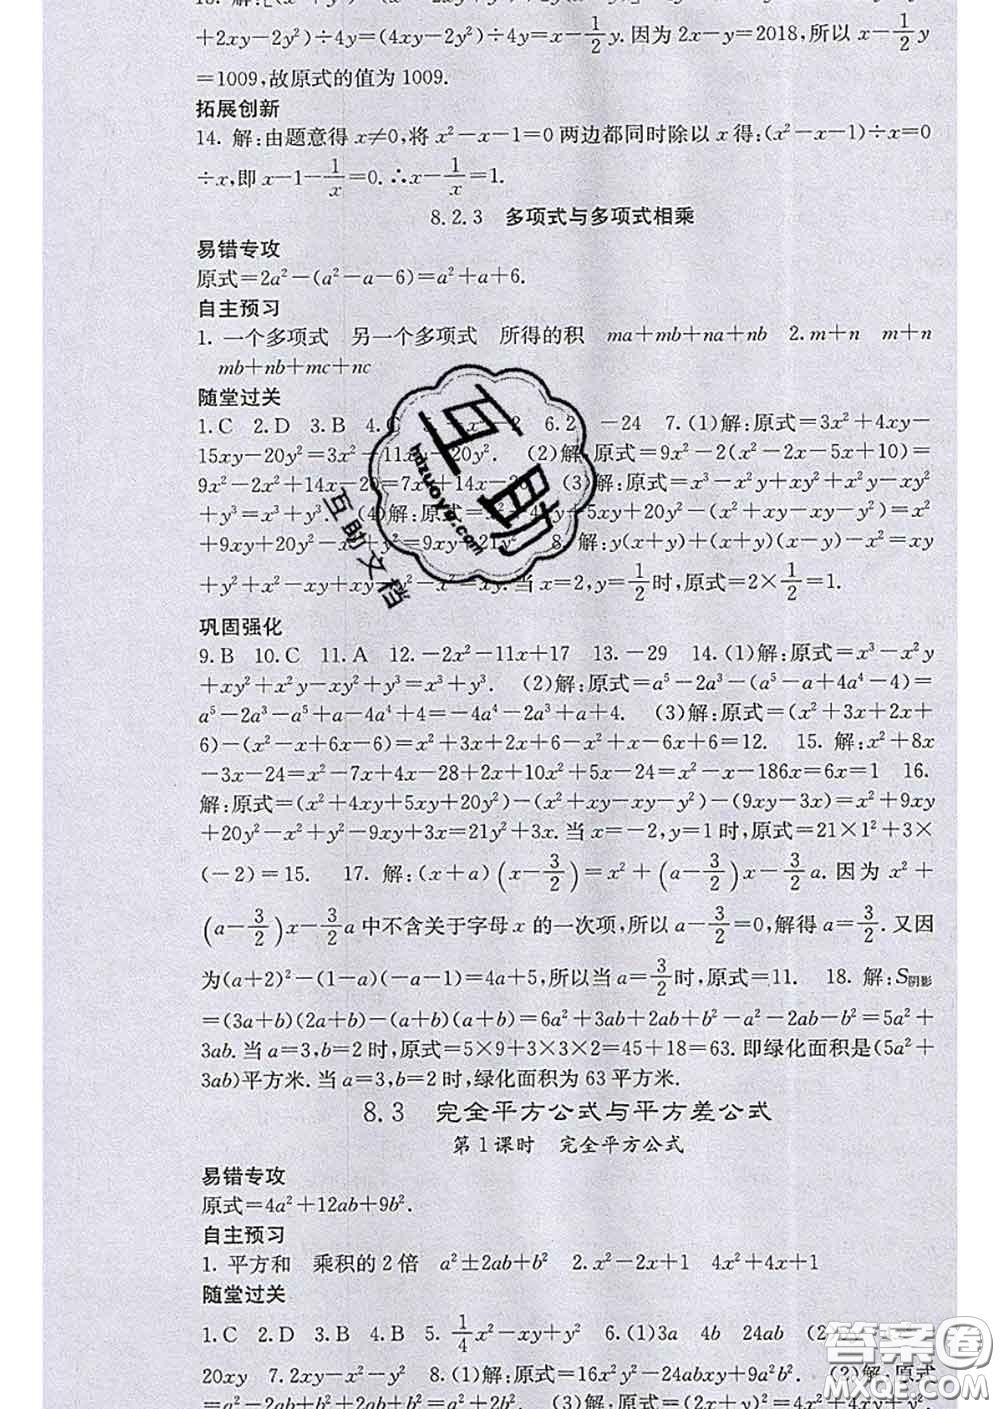 +2xy−2y²)÷4y=(4xy−2y²)÷4y=x−1/2y.因为2x−y=2018,所以x−1/2y
=1009,故原式的值为1009.
拓展创新
14. 解:由题意得x≠0,将x²−x−1=0两边都同时除以x得:(x²−x−1)÷x=0
÷x,即x−1−1/x=0.∴x−1/x=1.
8.2.3 多项式与多项式相乘
易错专攻
原式=2a²−(a²−a−6)=a²+a+6.
自主预习
1. 一个多项式 另一个多项式 所得的积 ma+mb+na+nb 2.m+n m+n
mb+nb+mc+nc
随堂过关
1.C 2.D 3.B 4.C 6.2 −24 7.(1)解:原式=3x²+4xy−
15xy−20y²=3x²−11xy−20y². (2)解:原式=9x²−2(x²−2x−5x+10)=
9x²−2x²+14x−20=7x²+14x−20. (3)解:原式=x³−x²y+xy²+x²y−xy²
+y³=x³+y³. (4)解:原式=x²+4xy+5xy+20y²−(x²+xy−xy−y²)=x²
+9xy+20y²−x²+y²=9xy+21y². 8. 解:y(x+y)+(x+y)(x−y)−x²=xy
+y²+x²−xy+xy−y²−x²=xy.当x=2,y=1/2时,原式=2×1/2=1.
巩固强化
9.B 10.C 11.A 12.−2x²−11x+17 13.−29 14.(1)解:原式=x³−x²y
+xy²+x²y−xy²+y³=x³+y³. (2)解:原式=a⁵−2a³−(a⁵−a+4a⁴−4)=
a⁵−2a³−a⁵+a−4a⁴+4=−4a⁴−2a³+a+4. (3)解:原式=(x²+3x+2x+
6)−(x²−x+6x−6)=x²+3x+2x+6−x²+x−6x+6=12. 15. 解:x²+8x
−3x−24=x²−7x+4x−28+2x²+10x−x²+5x−24=x²−x−186x=6x=1 16.
解:原式=(x²+4xy+5xy+20y²)−(x²+xy−xy−y²)−(9xy−3x)=x²+9xy
+20y²−x²+y²−9xy+3x=21y²+3x.当x=−2,y=1时,原式=21×1²+3×
(−2)=15. 17. 解:(x+a)(x−3/2)=x²+(a−3/2)x−3/2a.因为x²+
(a−3/2)x−3/2a中不含关于字母x的一次项,所以a−3/2=0,解得a=3/2.又因
为(a+2)²−(1−a)(−a−1)=4a+5,所以当a=3/2时,原式=11. 18. 解:S阴影
=(3a+b)(2a+b)−(a+b)(a+b)=6a²+3ab+2ab+b²−a²−2ab−b²=5a²+
3ab.当a=3,b=2时,原式=5×9+3×3×2=45+18=63.即绿化面积是(5a²+
3ab)平方米.当a=3,b=2时,绿化面积为63平方米.
8.3 完全平方公式与平方差公式
第1课时 完全平方公式
易错专攻
原式=4a²+12ab+9b².
自主预习
1. 平方和 乘积的2倍 a²±2ab+b² 2.x²−2x+1 4x²+4x+1
随堂过关
1.C 2.D 3.B 4.B 5. 1/4x²−xy+y² 6.(1)3a 4b 24ab
20xy 7.2xy−x²−y² 8.(1)解:原式=16x²y²−24abxy+9a²b². (2)解:原式
互助
huzuoye.com
互助文档
答案圈
MXQE.COM